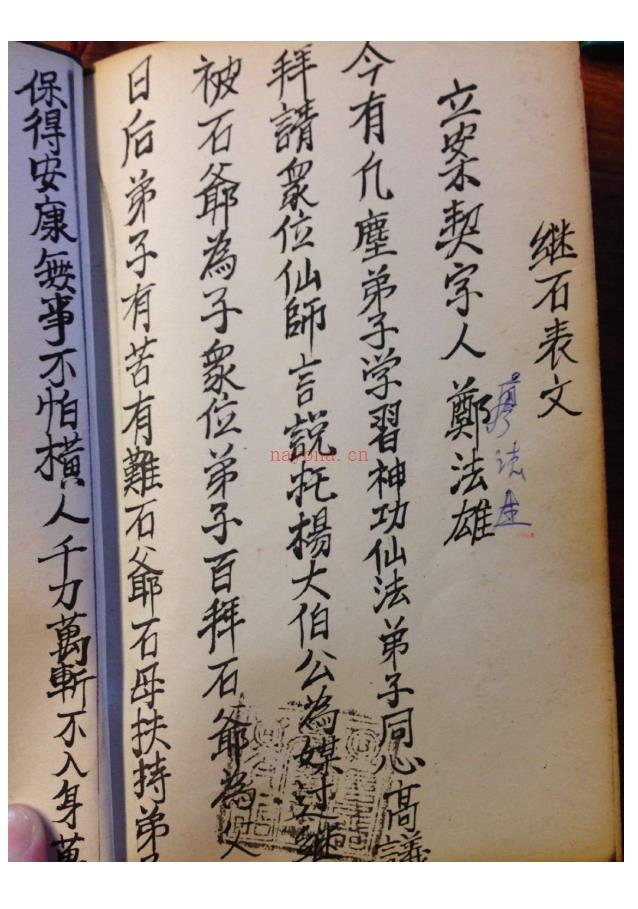 继石表文
立案契字人 鄭法雄
廖法
今有凢塵弟子学習神功仙法弟子同心高議
拜請衆位仙師言說托楊大伯公為媒过继
被石爺為子衆位弟子百拜石爺為父
日后弟子有苦有難石爺石母扶持弟子
保得安康無事不怕橫人千力萬斬不入身萬
nayona.cn